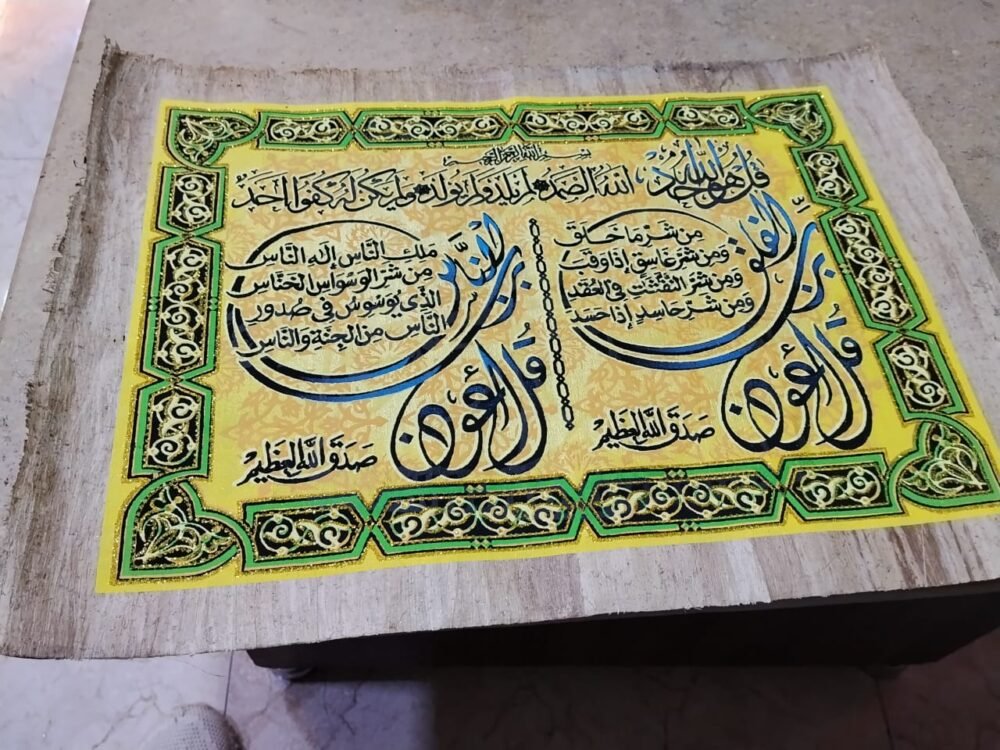 بسم الله الرحمن الرحيم
قل هو الله احد الله الصمد لم يلد ولم يولد ولم يكن له كفوا احد
قل أعوذ برب الفلق
من شر ما خلق
ومن شر غاسق إذا وقب
ومن شر النفثت في العقد
ومن شر حاسد إذا حسد
صدق الله العظيم
قل أعوذ برب الناس
ملك الناس إله الناس
من شر الوسواس الخناس
الذي يوسوس في صدور
الناس من الجنة والناس
صدق الله العظيم